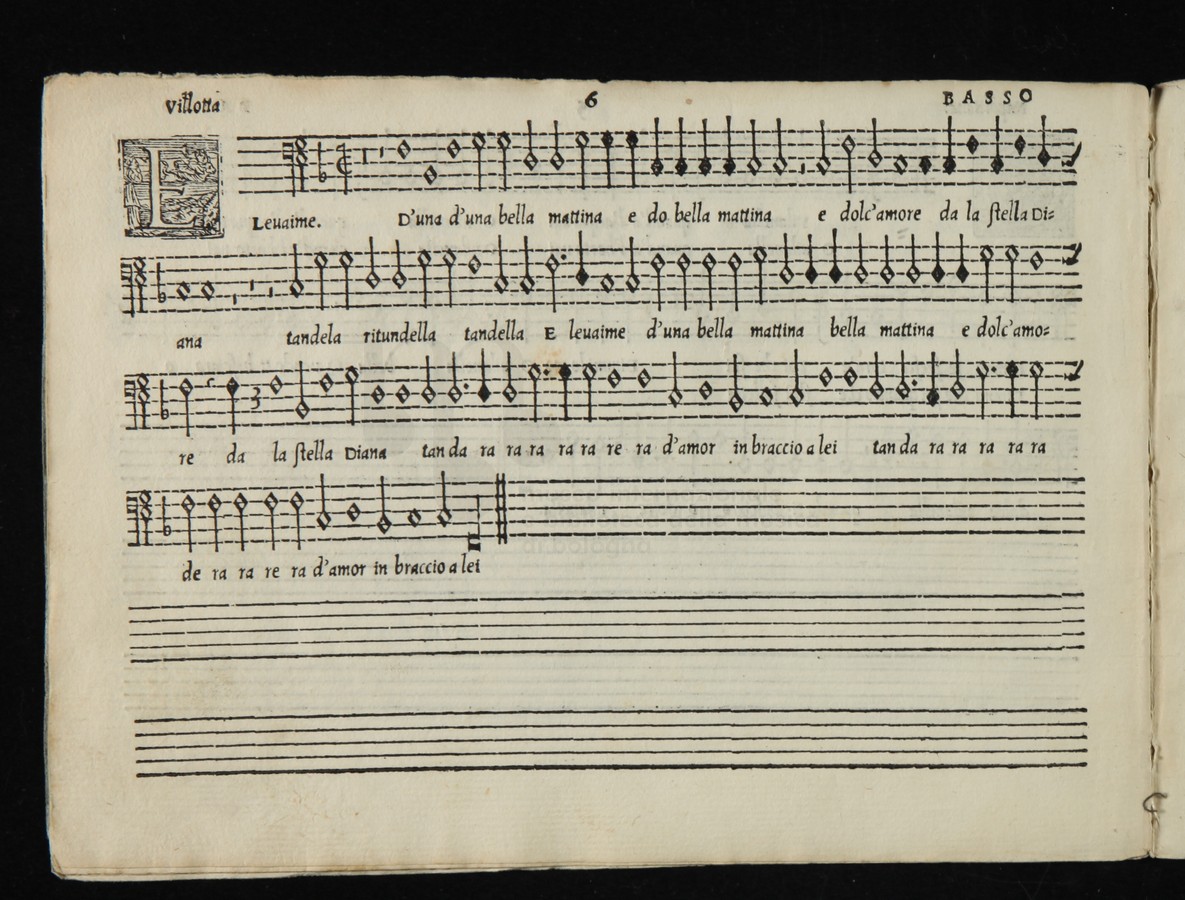 Villotta 6 BASSO
E Leuaime. D'una d'una bella mattina e do bella mattina e dolc'amore da la ſtella Di=
ana tandela ritundella tandella E leuaime d'una bella mattina bella mattina e dolc'amo=
3
re da la ſtella Diana tan da ra ra ra ra ra re ra d'amor in braccio a lei tan da ra ra ra ra ra
de ra ra re ra d'amor in braccio a lei